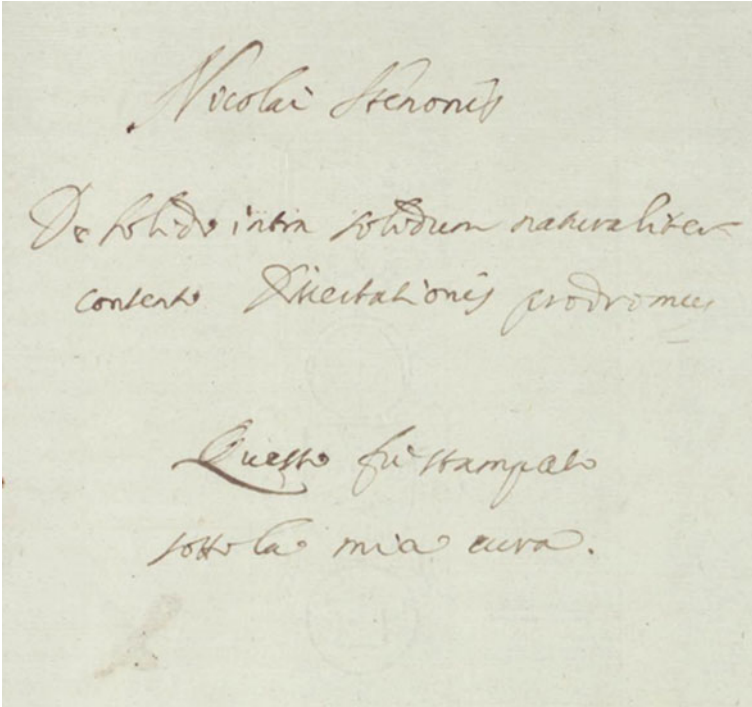 Nicolai Stenonis
De solido intra solidum naturaliter
contento Dissertationis prodromus
Questo fù stampato
sotto la mia cura.